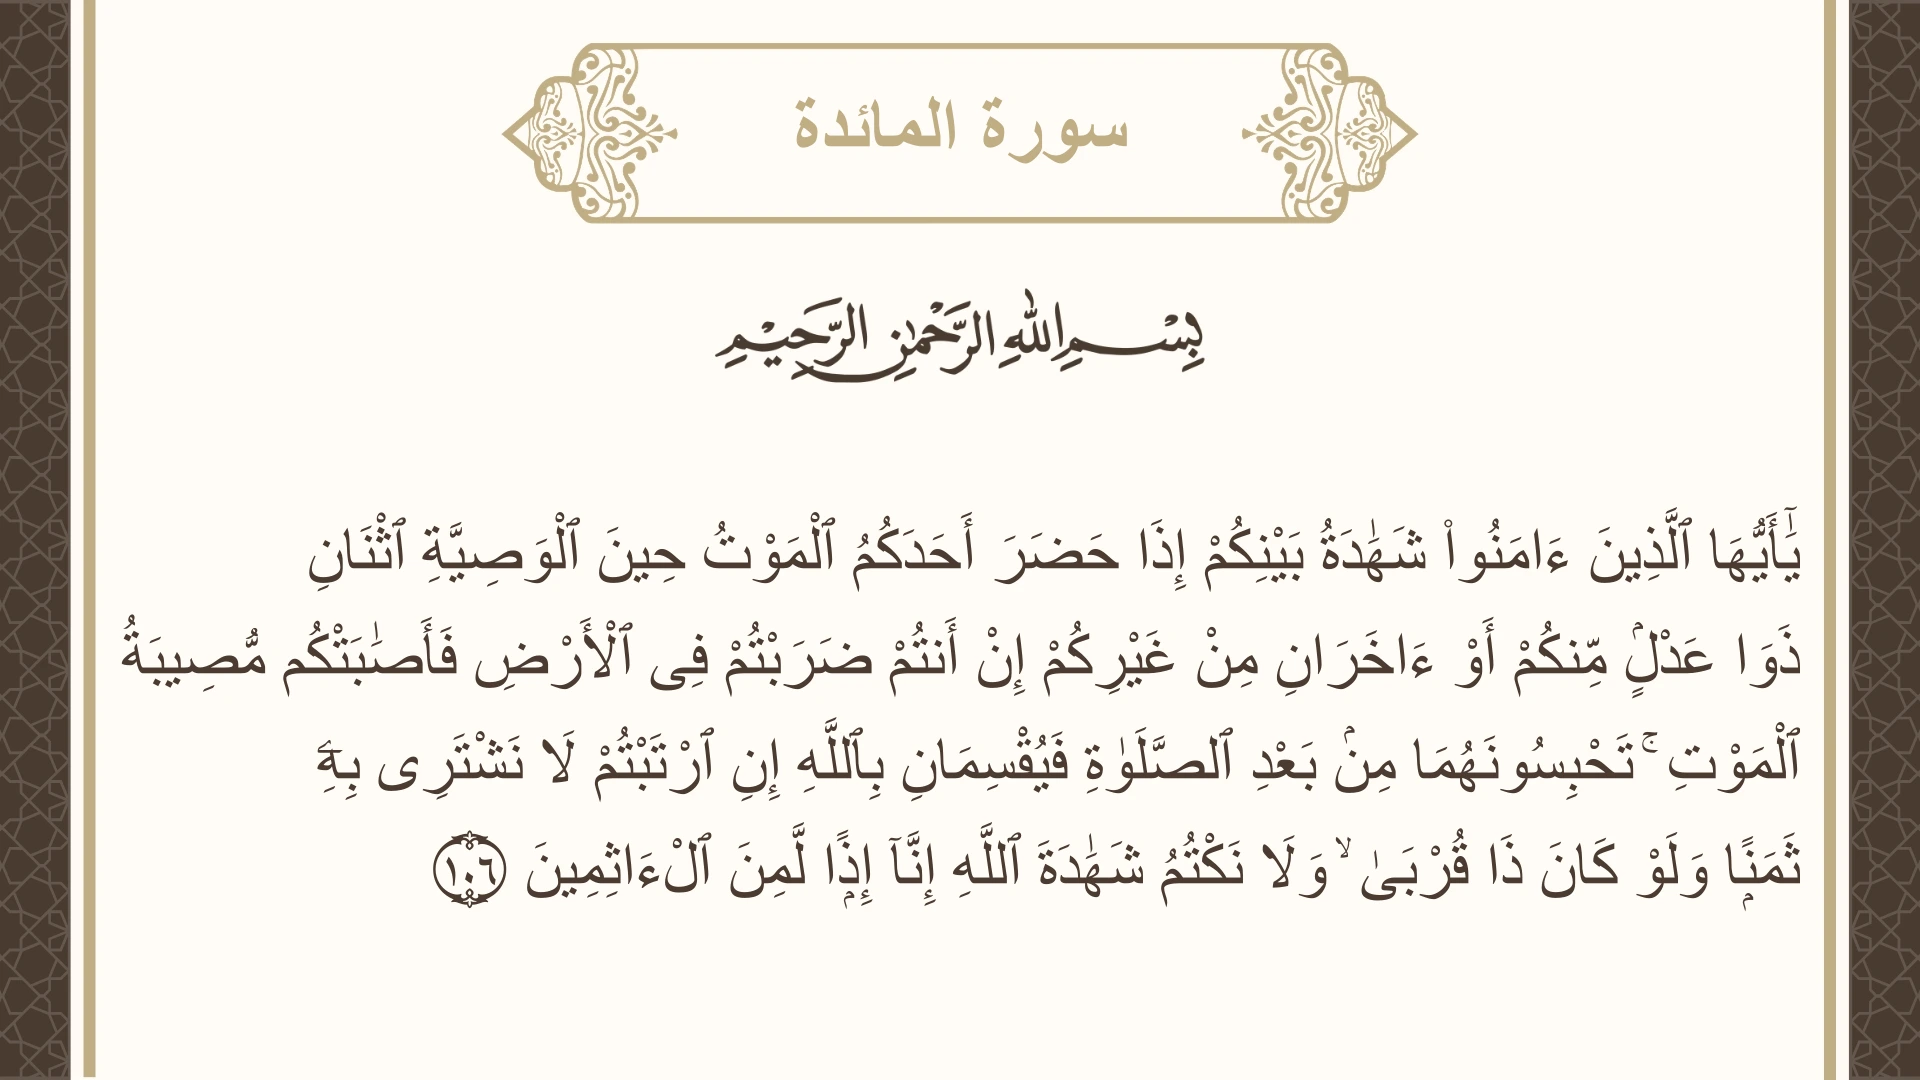 سورة المائدة
بِسْمِ اللهِ الرَّحْمٰنِ الرَّحِيْمِ
يَٰٓأَيُّهَا ٱلَّذِينَ ءَامَنُوا۟ شَهَٰدَةُ بَيْنِكُمْ إِذَا حَضَرَ أَحَدَكُمُ ٱلْمَوْتُ حِينَ ٱلْوَصِيَّةِ ٱثْنَانِ
ذَوَا عَدْلٍۢ مِّنكُمْ أَوْ ءَاخَرَانِ مِنْ غَيْرِكُمْ إِنْ أَنتُمْ ضَرَبْتُمْ فِى ٱلْأَرْضِ فَأَصَٰبَتْكُم مُّصِيبَةُ
ٱلْمَوْتِ ۚ تَحْبِسُونَهُمَا مِنۢ بَعْدِ ٱلصَّلَوٰةِ فَيُقْسِمَانِ بِٱللَّهِ إِنِ ٱرْتَبْتُمْ لَا نَشْتَرِى بِهِۦ
ثَمَنًۭا وَلَوْ كَانَ ذَا قُرْبَىٰ ۙ وَلَا نَكْتُمُ شَهَٰدَةَ ٱللَّهِ إِنَّآ إِذًۭا لَّمِنَ ٱلْءَاثِمِينَ ١٠٦